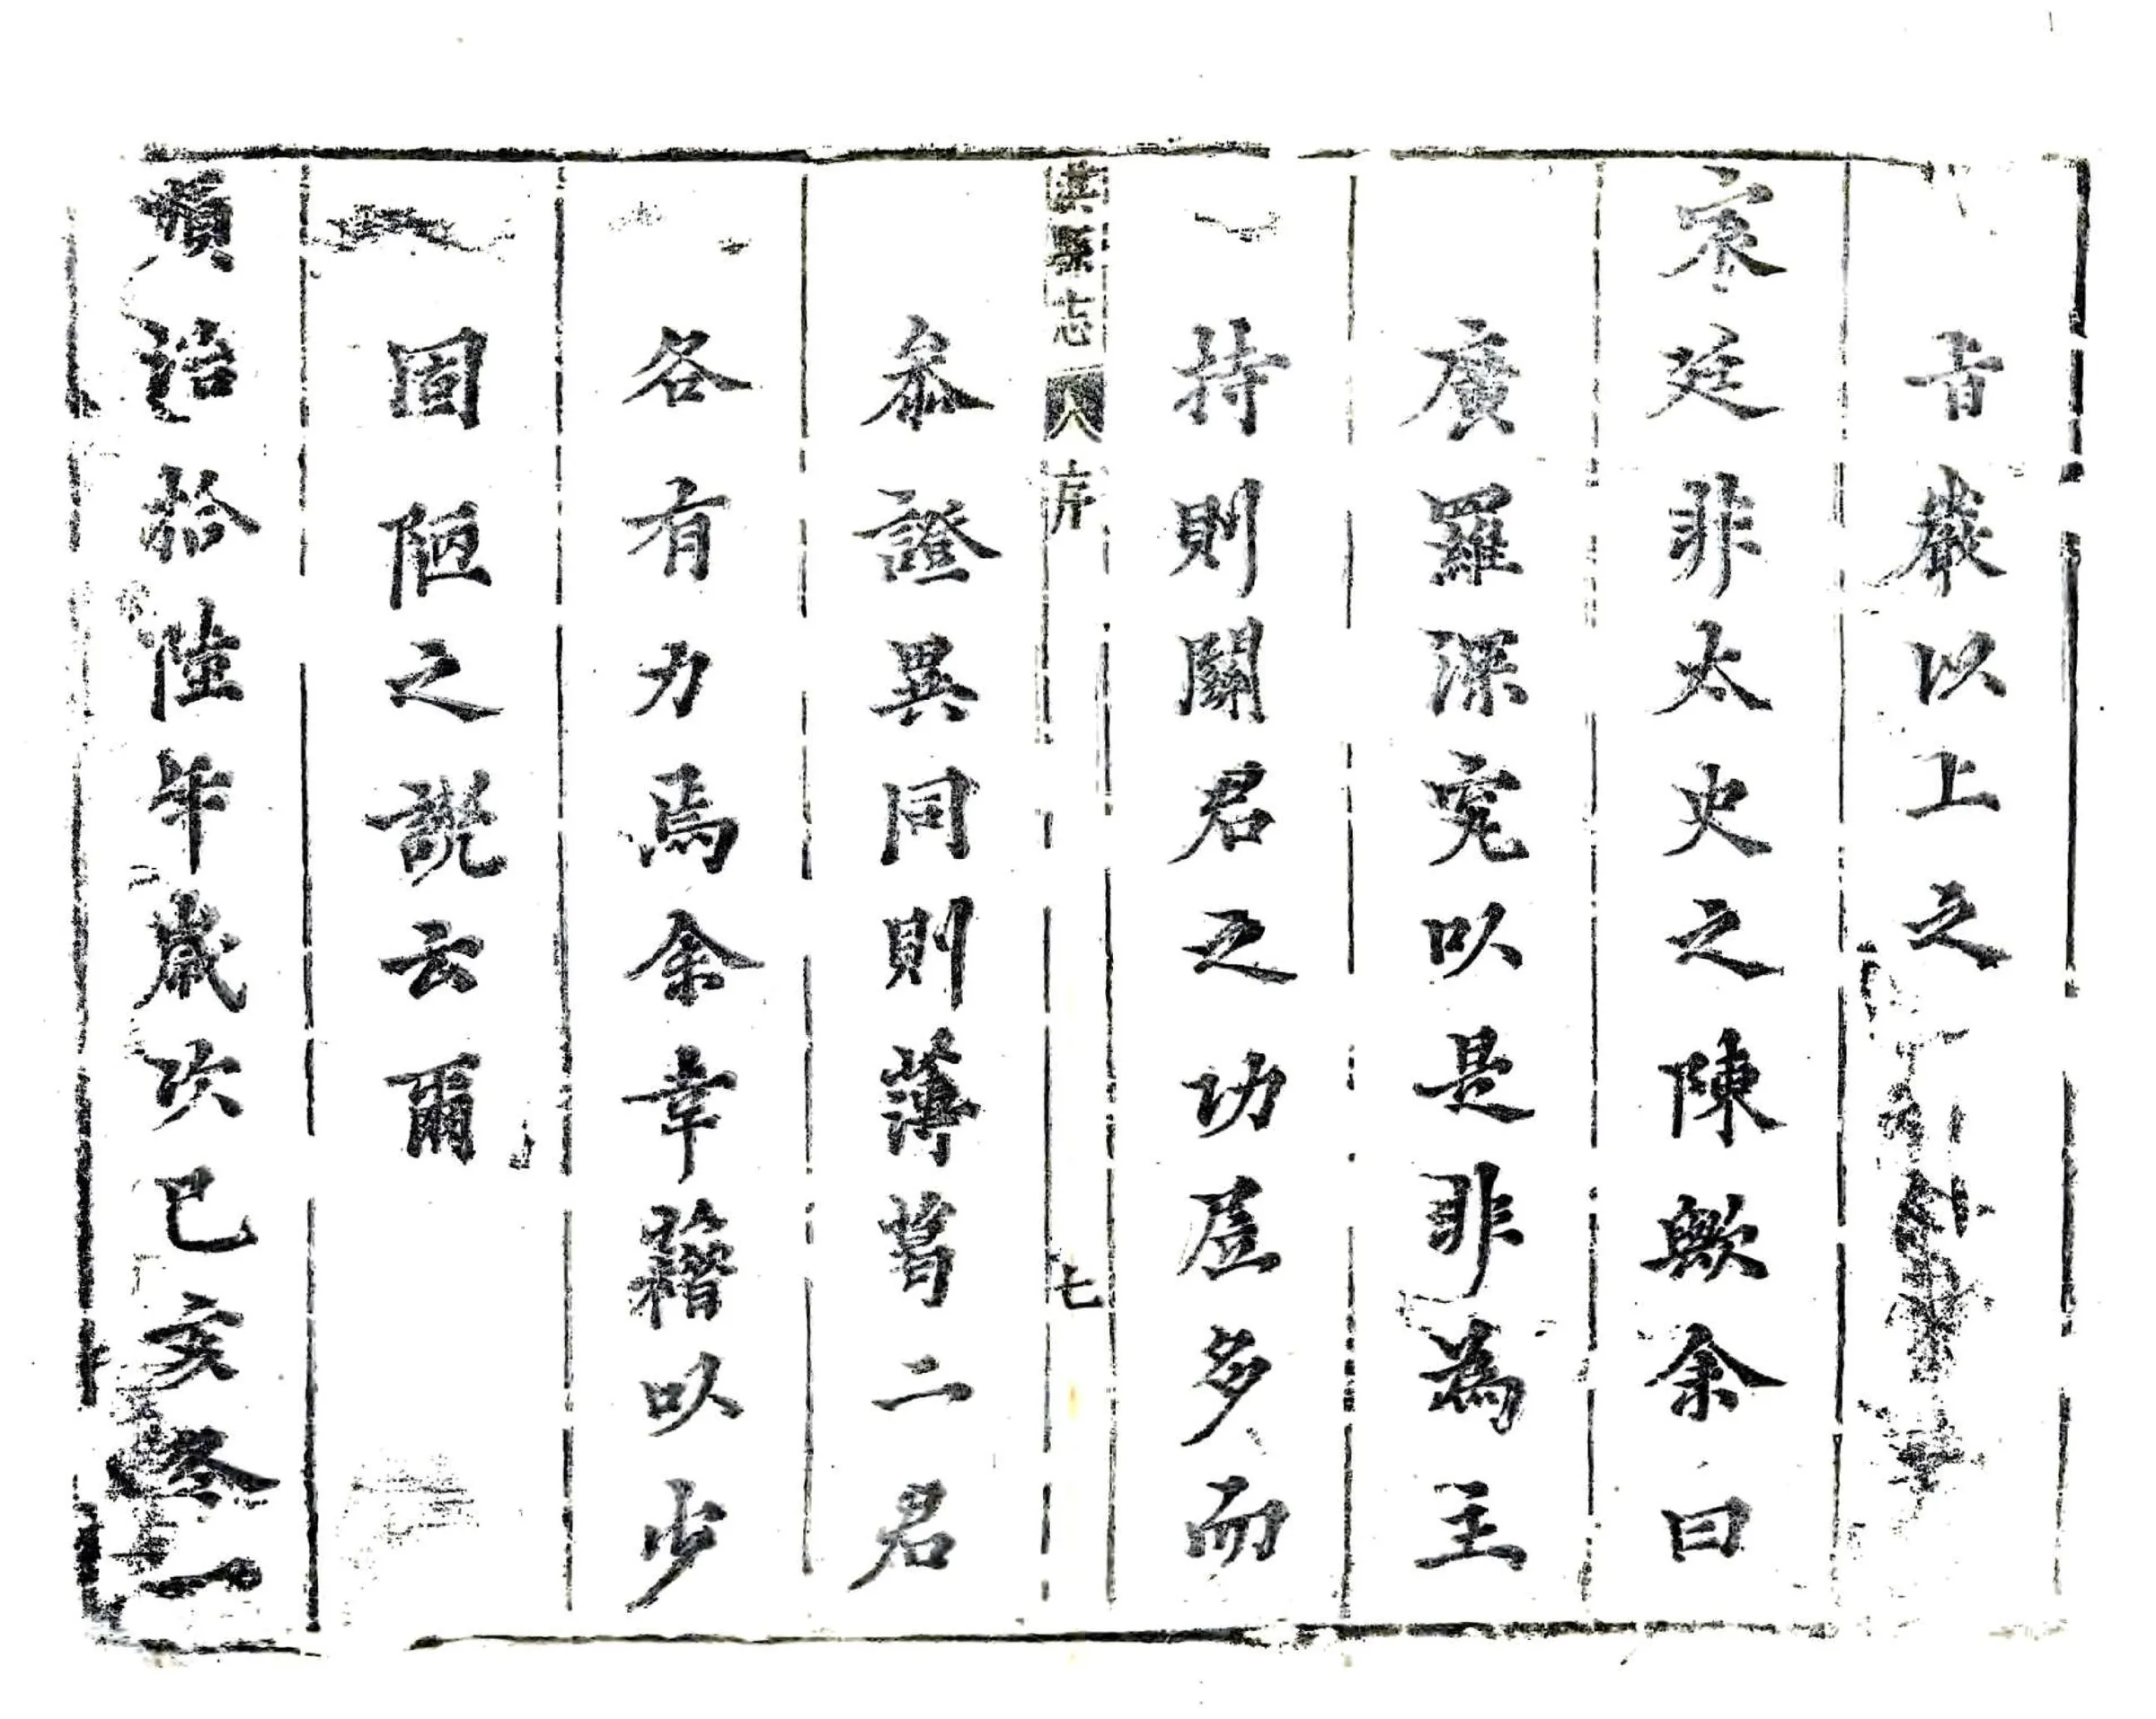 者嚴以上之
宸廷非太史之陳歟余曰
廣羅深究以是非為主
持則關君之功居多而
淇縣志 序 七
叅證異同則薄葛二君
各有力焉余幸藉以少
固陋之說云爾
順治拾陸年歲次己亥冬一